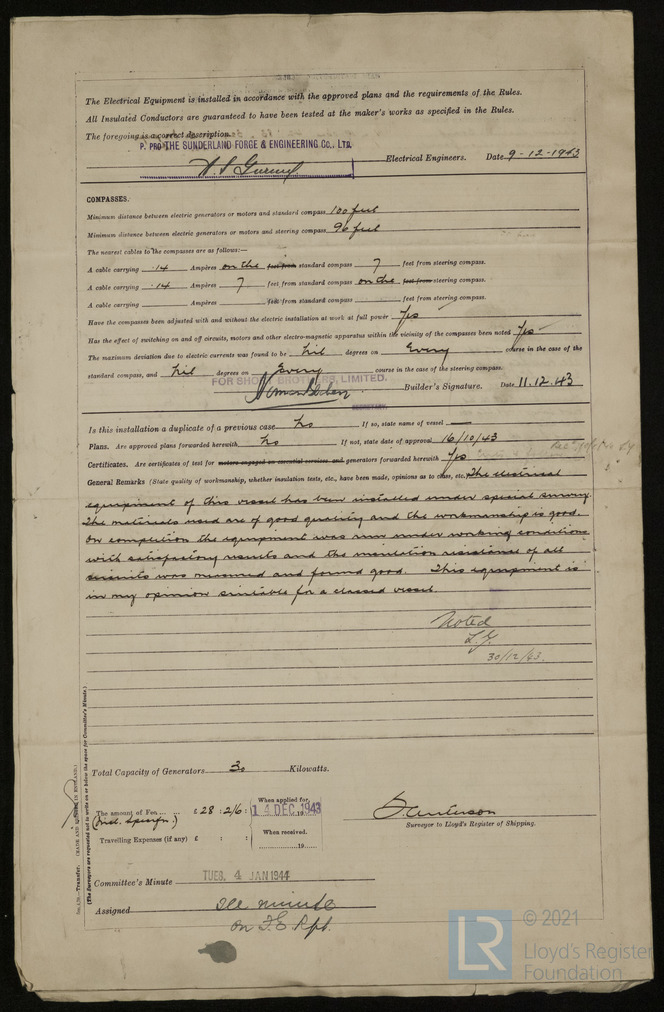 The Electrical Equipment is installed in accordance with the approved plans and the requirements of the Rules.
All Insulated Conductors are guaranteed to have been tested at the maker's works as specified in the Rules.
The foregoing is a correct description.
P. PRO THE SUNDERLAND FORGE & ENGINEERING Co., LTD.
Electrical Engineers. Date 9-12-1943
COMPASSES.
Minimum distance between electric generators or motors and standard compass 100 feet
Minimum distance between electric generators or motors and steering compass 96 feet
The nearest cables to the compasses are as follows:—
A cable carrying .14 Ampères on the feet from standard compass 7 feet from steering compass.
A cable carrying .14 Ampères 7 feet from standard compass on the feet from steering compass.
A cable carrying Ampères feet from standard compass feet from steering compass.
Have the compasses been adjusted with and without the electric installation at work at full power Yes
Has the effect of switching on and off circuits, motors and other electro-magnetic apparatus within the vicinity of the compasses been noted Yes
The maximum deviation due to electric currents was found to be Nil degrees on Every course in the case of the
standard compass, and Nil degrees on Every course in the case of the steering compass.
FOR SHORT BROTHERS, LIMITED.
Builder's Signature. Date 11.12.43
SECRETARY.
Is this installation a duplicate of a previous case No If so, state name of vessel —
Plans. Are approved plans forwarded herewith No If not, state date of approval 16/10/43
Certificates. Are certificates of test for motors engaged on essential services and generators forwarded herewith Yes
General Remarks (State quality of workmanship, whether insulation tests, etc., have been made, opinions as to class, etc. The electrical
equipment of this vessel has been installed under special survey.
The materials used are of good quality and the workmanship is good.
On completion the equipment was run under working conditions
with satisfactory results and the insulation resistance of all
circuits was measured and found good. This equipment is
in my opinion suitable for a classed vessel.
Noted
L.G.
30/12/43.
Total Capacity of Generators 30 Kilowatts.
The amount of Fee £ 28 : 2/6 : When applied for, 14 DEC 1943 19
(Incl. Specifn.)
Travelling Expenses (if any) £ : : When received. 19
Surveyor to Lloyd's Register of Shipping.
Committee's Minute TUES. 4 JAN 1944
Assigned See minute
on F.E. Rpt.
Transfer. (MADE AND PRINTED IN ENGLAND.)
(The Surveyors are requested not to write on or below the space for Committee's Minute.)
LR
© 2021
Lloyd's Register
Foundation